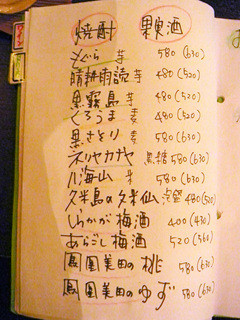 焼酎 果実酒
もぐら 芋 580(630)
晴耕雨読 芋 480(520)
黒霧島 芋 480(520)
くろうま 麦 480(520)
黒さとり 麦 580(630)
ネリヤカナヤ 黒糖 580(630)
八海山 米 580(630)
久米島の久米仙 泡盛 480(520)
しらかが梅酒 400(430)
あらごし梅酒 520(560)
鳳凰美田の桃 580(630)
鳳凰美田のゆず 580(630)